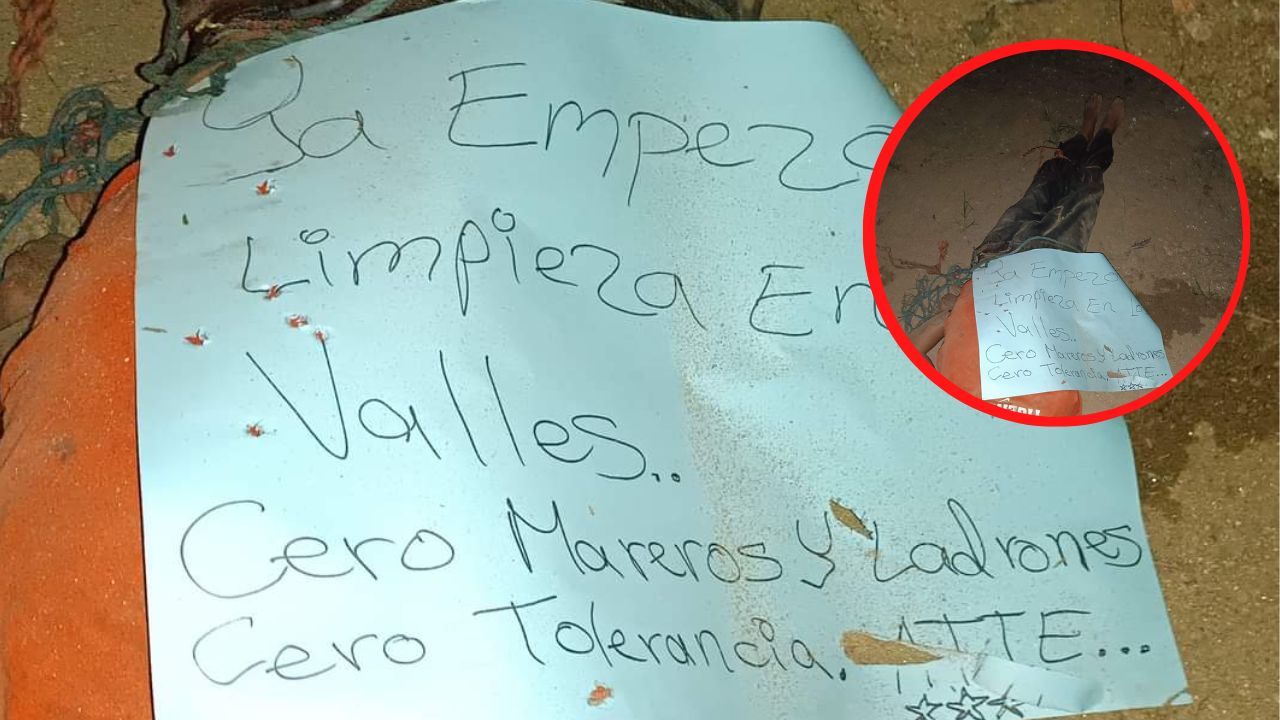 Ya Empezo
Limpieza En
Valles..
Cero Mareros y Ladrones
Cero Tolerancia. ATTE...
Ya Empezo
Limpieza En La
Valles..
Cero Mareros y Ladrones
Cero Tolerancia. ATTE...